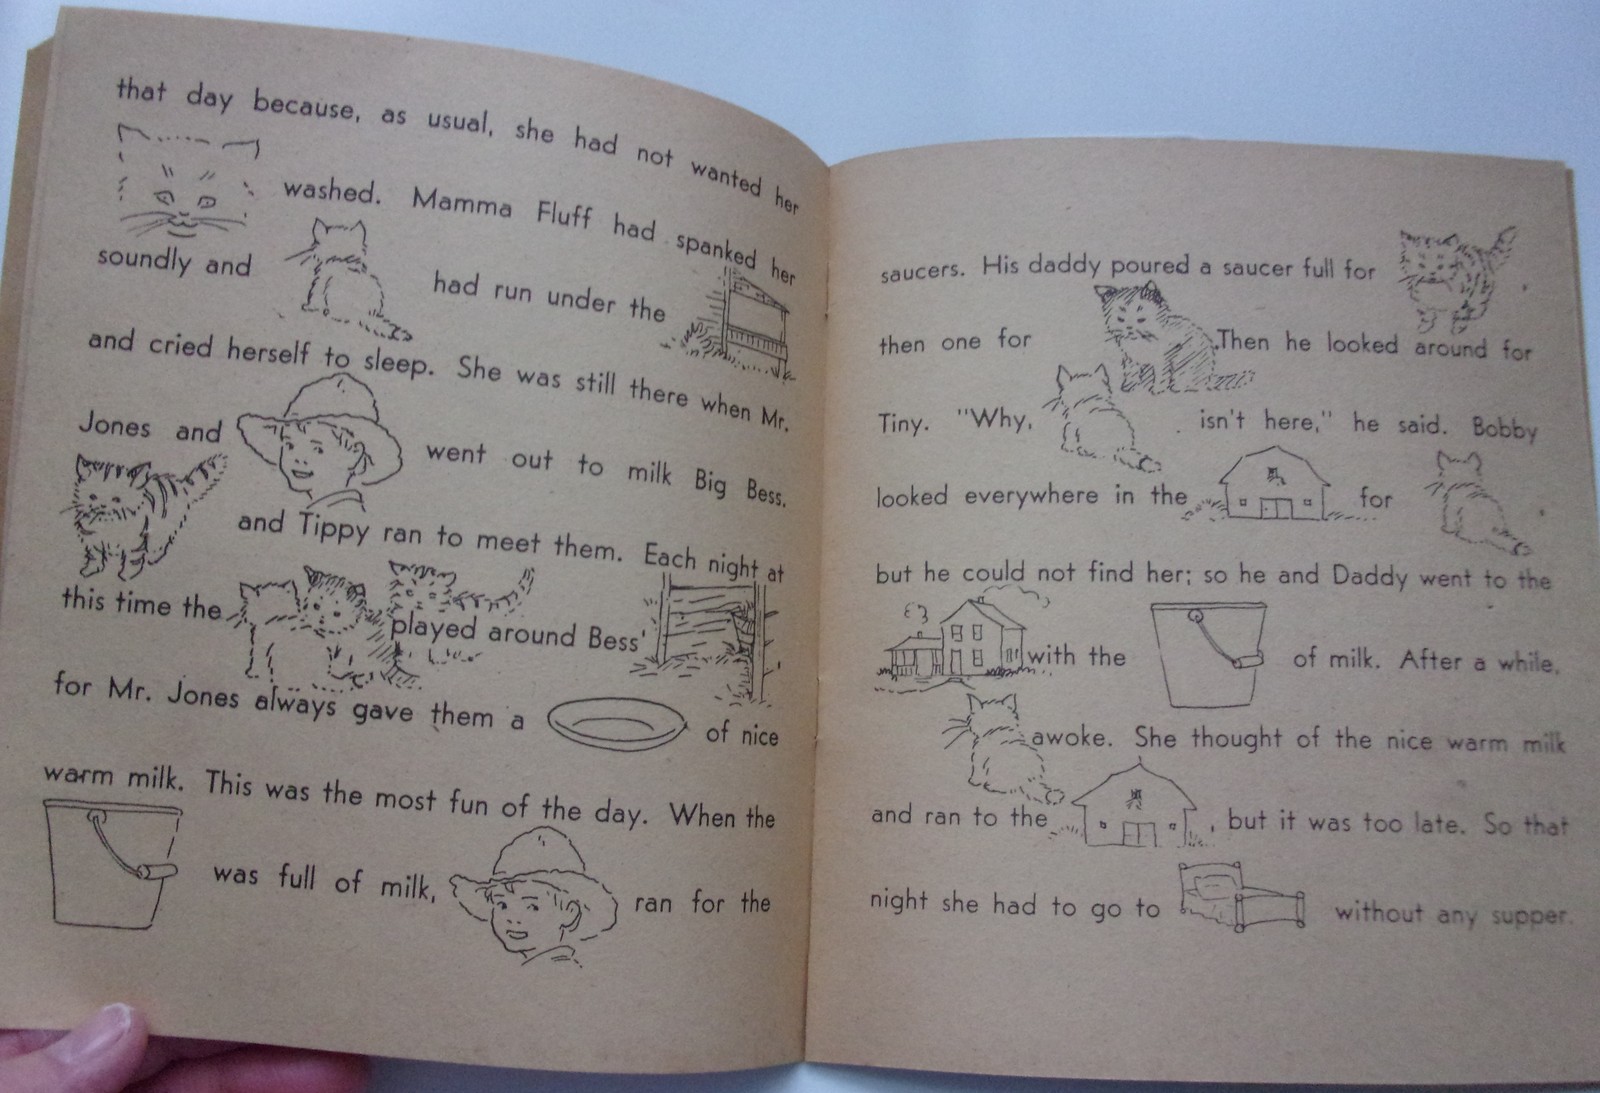 that day because, as usual, she had not wanted her
washed. Mamma Fluff had spanked her
soundly and had run under the
and cried herself to sleep. She was still there when Mr.
Jones and went out to milk Big Bess.
and Tippy ran to meet them. Each night at
this time the played around Bess'
for Mr. Jones always gave them a of nice
warm milk. This was the most fun of the day. When the
was full of milk, ran for the
saucers. His daddy poured a saucer full for
then one for .Then he looked around for
Tiny. "Why, isn't here," he said. Bobby
looked everywhere in the for
but he could not find her; so he and Daddy went to the
with the of milk. After a while,
awoke. She thought of the nice warm milk
and ran to the , but it was too late. So that
night she had to go to without any supper.